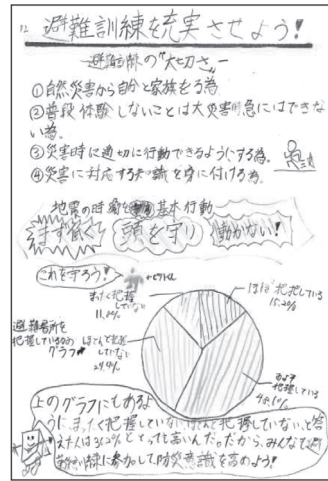 避難訓練を充実させよう!
避難訓練の"大切さ"
①自然災害から自分と家族を守る為
②普段体験しないことは大災害時急にはできな
い為。
③災害時に適切に行動できるようにする為。
④災害に対応する知識を身に付ける為。
地震の時 基本行動
まず低く 頭を守り 動かない!
これを守ろう!
ほぼ把握している
まったく把握
していない
避難場所を
把握しているかの
グラフ
ほとんど把握
していない
把握している
上のグラフにもあるよ
うに、まったく把握していない、ほとんど把握していない、と答
えた人は36.2%ととっても高いんだ。だから、みんなも避
難訓練に参加して、防災意識を高めよう!